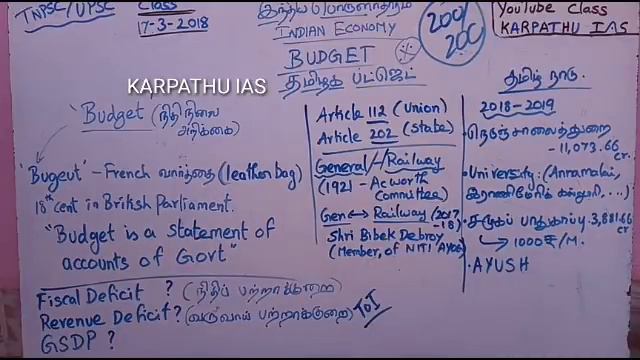 TNPSC/UPSC
Class
17-3-2018
இந்திய பொருளாதாரம்
INDIAN ECONOMY
BUDGET
தமிழக பட்ஜெட்
200/
200
YouTube Class
KARPATHU IAS
KARPATHU IAS
'Budget (நிதிநிலை
அறிக்கை)
'Bugeut' - French வார்த்தை (leather bag)
18th cent in British Parliament.
"Budget is a statement of
accounts of Govt"
Fiscal Deficit ? (நிதிப் பற்றாக்குறை)
Revenue Deficit? (வருவாய் பற்றாக்குறை) ToI
GSDP ?
Article 112 (Union)
Article 202 (State)
General / Railway
(1921 - Acworth
Committee)
Gen ↔ Railway (2017
-18)
Shri Bibek Debroy
(Member, of NITI Ayog)
தமிழ் நாடு.
2018-2019
• நெடுஞ்சாலைத்துறை
- 11,073.66
cr.
• University: (Annamalai,
ராணிமேரிக் கல்லூரி, ...)
• சமூகப் பாதுகாப்பு 3,881.66
cr
→ 1000₹/M.
• AYUSH